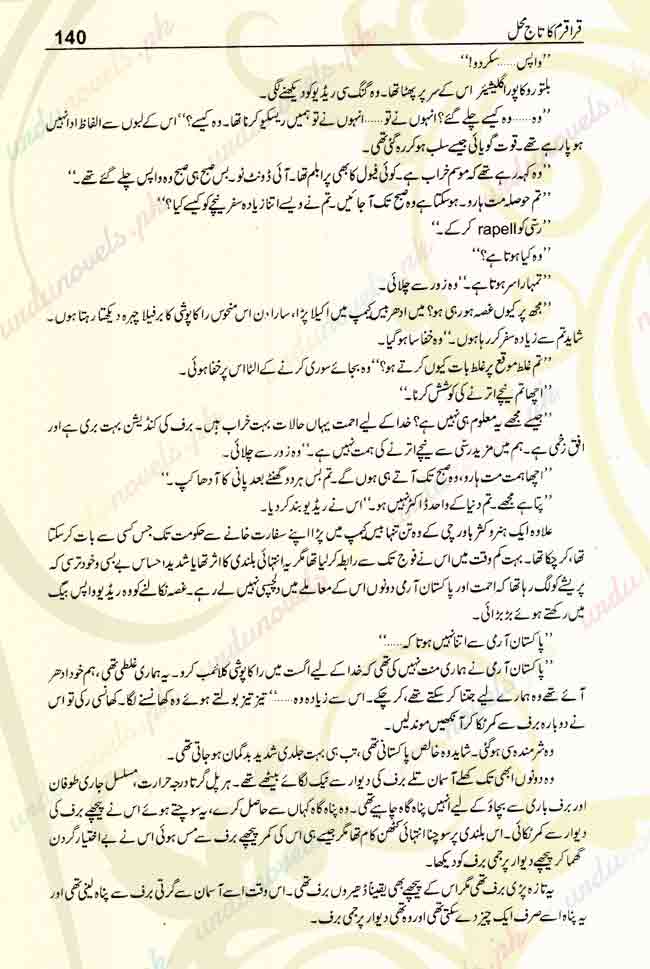 140
قراقرم کا تاج محل
”واپس ...... سکردو!“
بلتورو کا پورا گلیشیئر اس کے سر پر پھٹا تھا۔ وہ گنگ سی ریڈیو کو دیکھنے لگی۔
”وہ ...... وہ کیسے چلے گئے؟ انہوں نے تو ...... انہوں نے تو ہمیں ریسکیو کرنا تھا۔ وہ کیسے؟“ اس کے لبوں سے الفاظ ادا نہیں
ہو پا رہے تھے۔ قوت گویائی جیسے سلب ہو کر رہ گئی تھی۔
”وہ کہہ رہے تھے کہ موسم خراب ہے۔ کوئی فیول کا بھی پرابلم تھا۔ آئی ڈونٹ نو۔ بس صبح ہی صبح وہ واپس چلے گئے تھے۔“
”تم حوصلہ مت ہارو۔ ہو سکتا ہے وہ صبح تک آ جائیں۔ تم نے ویسے اتنا زیادہ سفر نیچے کو کیسے کیا؟“
”رسی کو rapell کر کے۔“
”وہ کیا ہوتا ہے؟“
”تمہارا سر ہوتا ہے۔“ وہ زور سے چلائی۔
”مجھ پر کیوں غصہ ہو رہی ہو؟ میں ادھر بیس کیمپ میں اکیلا پڑا، سارا دن اس منحوس راکاپوشی کا برفیلا چہرہ دیکھتا رہتا ہوں۔
شاید تم سے زیادہ سفر کر رہا ہوں۔“ وہ خفا سا ہو گیا۔
”تم غلط موقع پر غلط بات کیوں کرتے ہو؟“ وہ بجائے سوری کرنے کے الٹا اس پر خفا ہوئی۔
”اچھا تم نیچے اترنے کی کوشش کرنا۔“
”جیسے مجھے یہ معلوم ہی نہیں ہے؟ خدا کے لیے احمت یہاں حالات بہت خراب ہیں۔ برف کی کنڈیشن بہت بری ہے اور
افق زخمی ہے۔ ہم میں مزید رسی سے نیچے اترنے کی ہمت نہیں ہے۔“ وہ زور سے چلائی۔
”اچھا ہمت مت ہارو، وہ صبح تک آتے ہی ہوں گے۔ تم بس ہر دو گھنٹے بعد پانی کا آدھا کپ۔“
”پتا ہے مجھے۔ تم دنیا کے واحد ڈاکٹر نہیں ہو۔“ اس نے ریڈیو بند کر دیا۔
علاوہ ایک ہنزو ککڑ باورچی کے وہ تن تنہا بیس کیمپ میں پڑا اپنے سفارت خانے سے حکومت تک جس کسی سے بات کر سکتا
تھا، کر چکا تھا۔ بہت کم وقت میں اس نے فوج تک سے رابطہ کر لیا تھا مگر یہ انتہائی بلندی کا اثر تھا یا شدید احساس بے بسی و خود ترسی کہ
پریشے کو لگ رہا تھا کہ احمت اور پاکستان آرمی دونوں اس کے معاملے میں دلچسپی نہیں لے رہے۔ غصہ نکالنے کو وہ ریڈیو واپس بیگ
میں رکھتے ہوئے بڑبڑائی۔
”پاکستان آرمی سے اتنا نہیں ہوتا کہ ......“
”پاکستان آرمی نے ہماری منت نہیں کی تھی کہ خدا کے لیے اگست میں راکاپوشی کلائمب کرو۔ یہ ہماری غلطی تھی، ہم خود ادھر
آئے تھے وہ ہمارے لیے جتنا کر سکتے تھے، کر چکے۔ اس سے زیادہ وہ ......“ تیز تیز بولتے ہوئے وہ کھانسنے لگا۔ کھانسی رکی تو اس
نے دوبارہ برف سے کمر ٹکا کر آنکھیں موند لیں۔
وہ شرمندہ سی ہو گئی۔ شاید وہ خالص پاکستانی تھی، تب ہی بہت جلدی شدید بدگمان ہو جاتی تھی۔
وہ دونوں ابھی تک کھلے آسمان تلے برف کی دیوار سے ٹیک لگائے بیٹھے تھے۔ ہر پل گرتا درجہ حرارت، مسلسل جاری طوفان
اور برف باری سے بچاؤ کے لیے انہیں پناہ گاہ چاہیے تھی۔ وہ پناہ گاہ کہاں سے حاصل کرے، یہ سوچتے ہوئے اس نے پیچھے برف کی
دیوار سے کمر ٹکائی۔ اس بلندی پر سوچنا انتہائی کٹھن کام تھا مگر جیسے ہی اس کی کمر پیچھے برف سے مس ہوئی اس نے بے اختیار گردن
گھما کر پیچھے دیوار پر جمی برف کو دیکھا۔
یہ تازہ پڑی برف تھی مگر اس کے پیچھے بھی یقیناً ڈھیروں برف تھی۔ اس وقت اسے آسمان سے گرتی برف سے پناہ لینی تھی اور
یہ پناہ اسے صرف ایک چیز دے سکتی تھی اور وہ تھی دیوار پر جمی برف۔